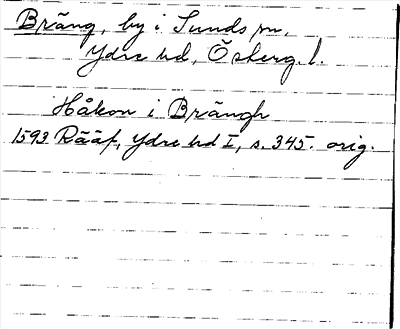 Bräng, by i Sunds sn,
Ydre hd, Österg. l.
Håkon i Brängh
1593 Rääf, Ydre hd I, s. 345. orig.